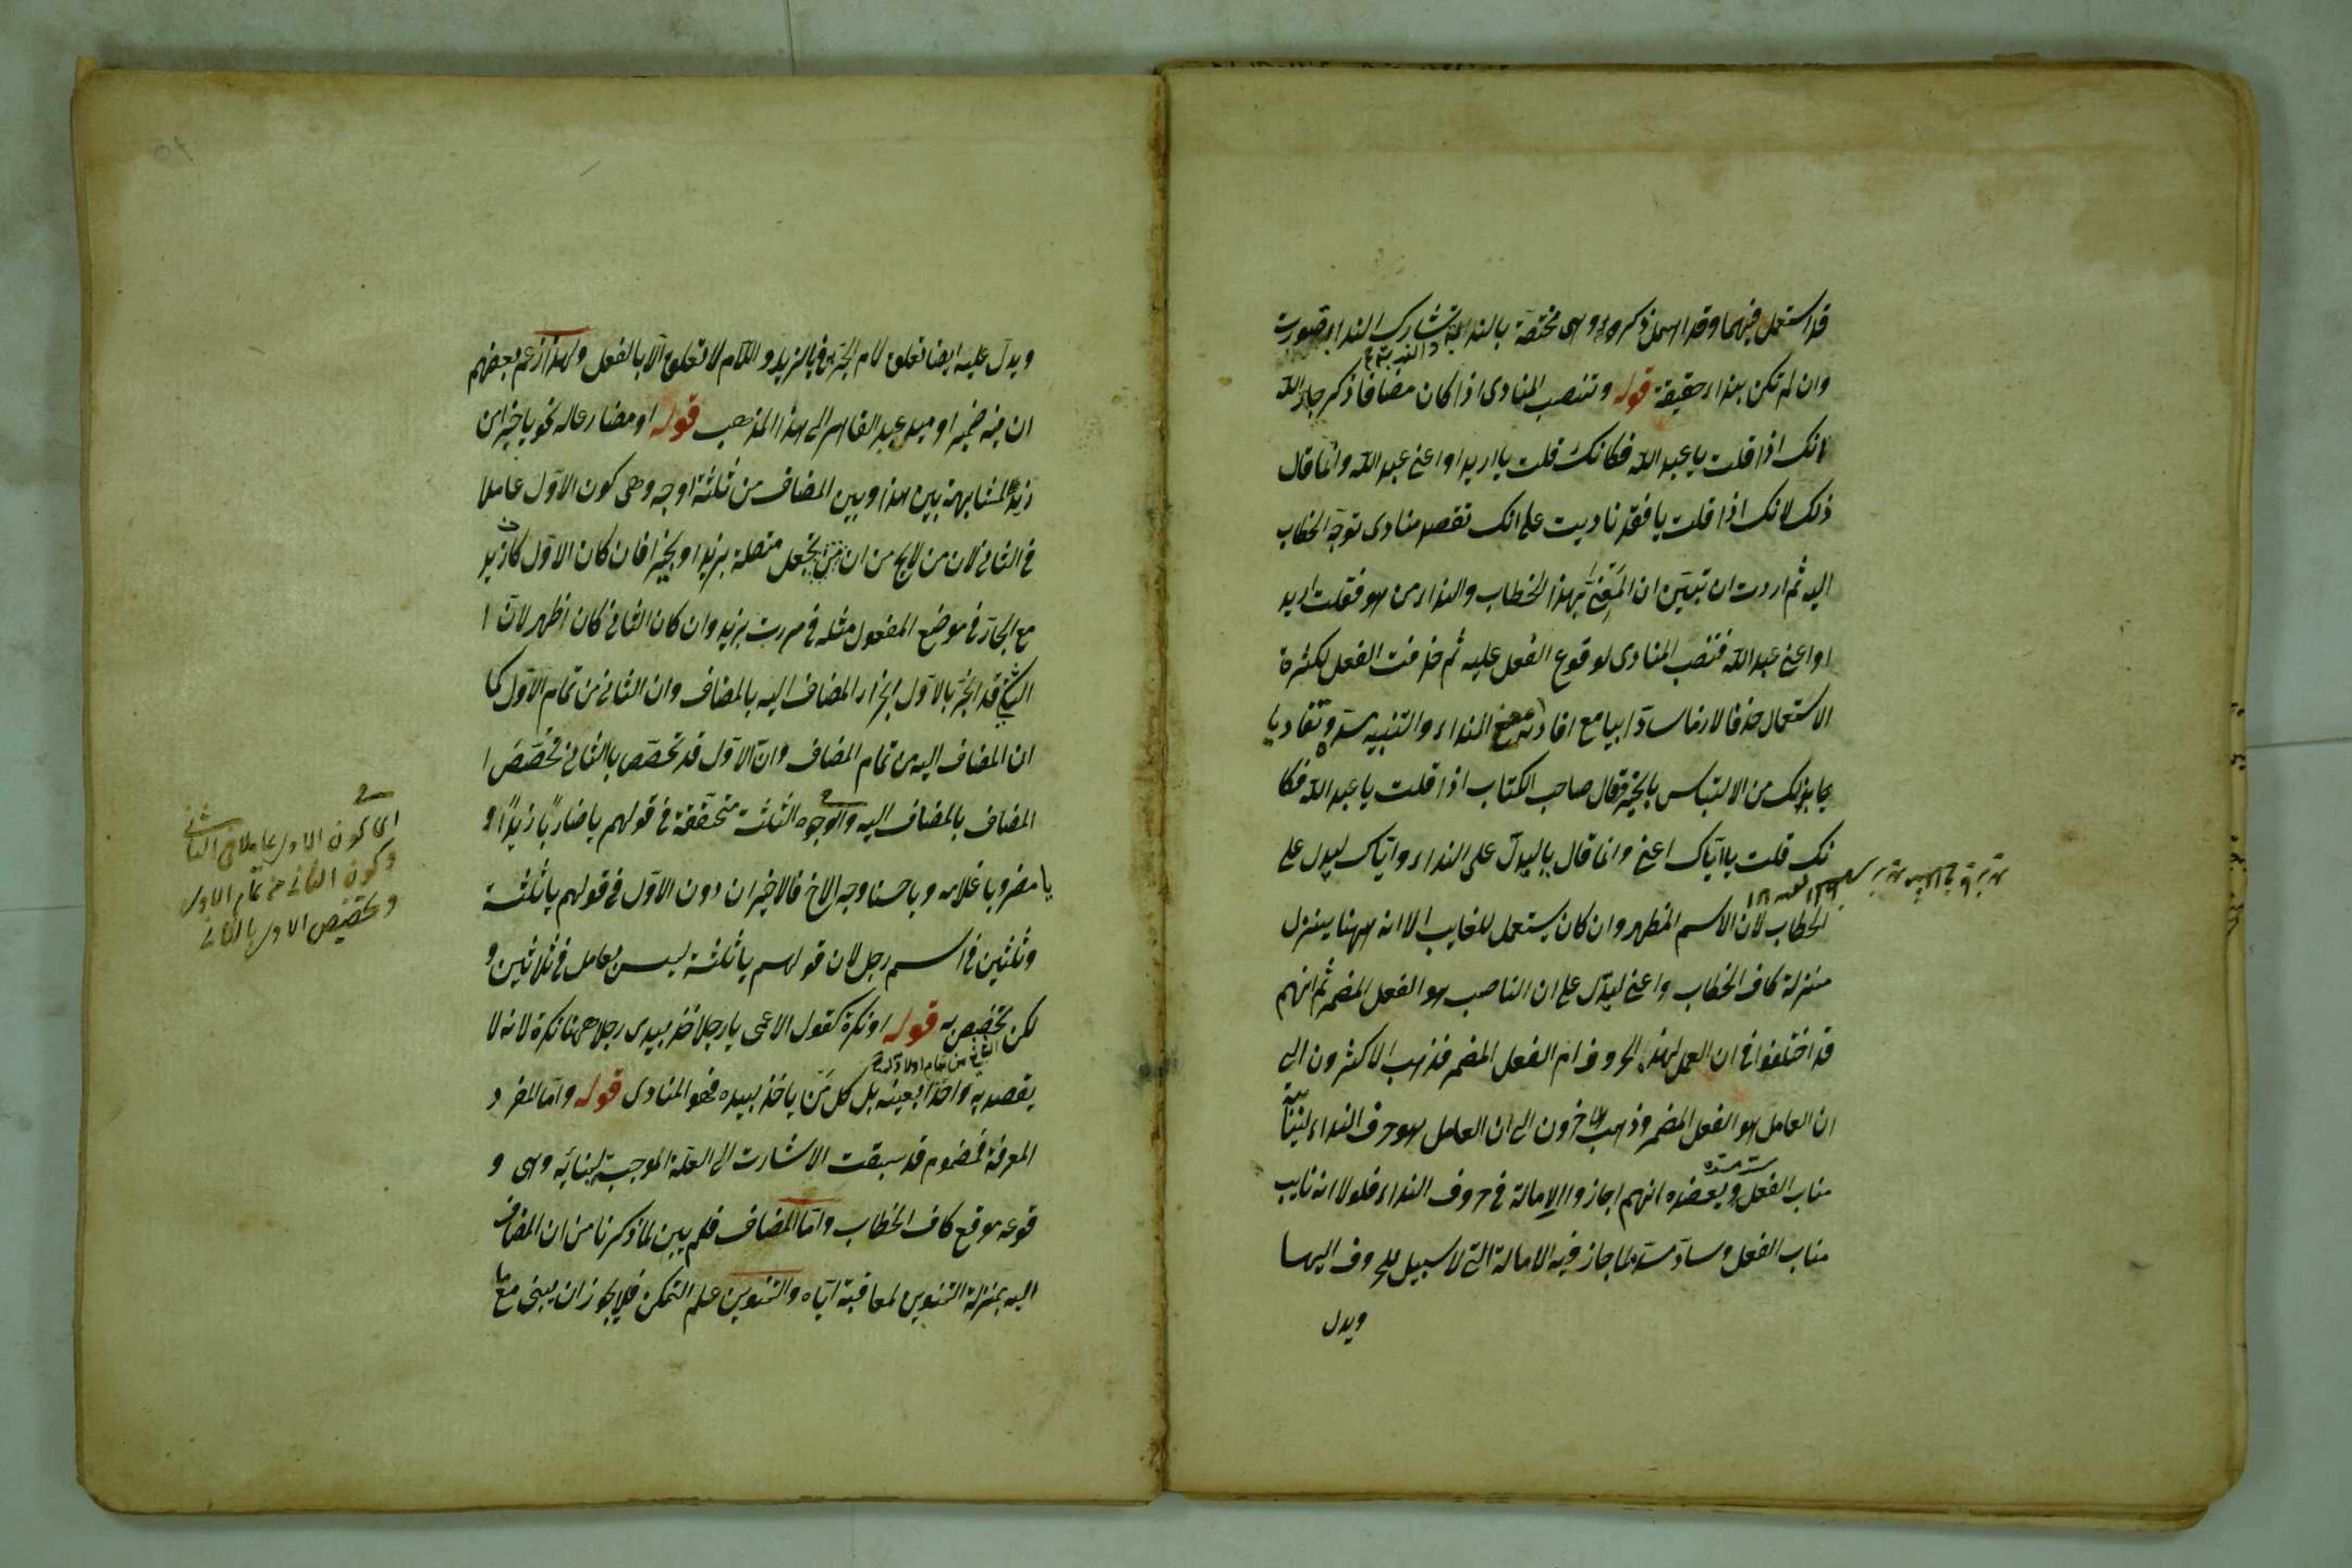 قد استعمل فيهما وقد اهمل ذكره وا وهى مختصة بالندبة تشارك النداء بصورت
والندبة
وان لم تكن بنداء حقيقة قوله وتنصب المنادى اذا كان مضافا ذكر جار الله
انك اذا قلت يا عبد الله فكانك قلت يا اريد او اعنى عبد الله وانما قال
ذلك لانك اذا قلت يا فقد ناديت على انك تقصد منادى توجه الخطاب
اليه ثم اردت ان تبين ان المعنى بهذا الخطاب والنداء من هو فقلت اريد
او اعنى عبد الله فتنصب المنادى لوقوع الفعل عليه ثم حذفت الفعل لكثرة
الاستعمال حذفا لازما سادا يا مع افادته معنى النداء والتنبيه مسده وتفاديا
بما بذلك من الالتباس بالخبر فقال صاحب الكتاب اذا قلت يا عبد الله فكا
نك قلت يا اياك اعنى وانما قال يا ليدل على النداء واياك ليدل على
الخطاب لان الاسم المظهر وان كان يستعمل للغايب الا انه ههنا ينزل
منزلة كاف الخطاب واعنى ليدل على ان الناصب هو الفعل المضمر ثم انهم
قد اختلفوا فى ان العمل لهذه الحروف ام الفعل المضمر فذهب الاكثرون الى
ان العامل هو الفعل المضمر وذهب الاخرون الى ان العامل هو حرف النداء لنيابته
مناب الفعل ويعضده انهم اجازوا الامالة فى حروف النداء فلولا انه نايب
مناب الفعل وساد مسده لما جاز فيه الامالة التى لا سبيل للحروف اليها
ويدل
ويدل عليه ايضا تعلق لام الجر بها فى يا لزيد واللام لا تعلق الا بالفعل ولهذا زعم بعضهم
ان فيه ضميرا وميل عبد القاهر الى هذا المذهب قوله او مضارعا له نحو يا خيرا من
زيد للمشابهة بين هذا وبين المضاف من ثلثة اوجه وهى كون الاول عاملا
فى الثانى لان من لا يخ من ان يجعل متصلة بزيد او بخيرا فان كان الاول كان زيد
مع الجار فى موضع المفعول مثله فى مررت بزيد وان كان الثانى كان اظهر لان ا
لشئ قد انجر بالاول انجرار المضاف اليه بالمضاف وان الثانى من تمام الاول كما
ان المضاف اليه من تمام المضاف وان الاول قد تخصص بالثانى تخصص ا
المضاف بالمضاف اليه والوجوه الثلثة متحققة فى قولهم يا ضاربا زيدا و
يا مضروبا غلامه ويا حسنا وجه الاخ فالاخيران دون الاول فى قولهم يا ثلثة
وثلثين فى اسم رجل لان قولهم يا ثلثة ليس بعامل فى ثلاثين و
لكن تخصيص به قوله او نكرة كقول الاعمى يا رجلا خذ بيدى رجلا ههنا نكرة لانه لا
يقصد به واحدا بعينه بل كل من ياخذ بيده فهو المنادى قوله واما المفرد
المعرفة فمضموم قد سبقت الاشارت الى العلة الموجبة لبنائه وهى و
قوعه موقع كاف الخطاب واما المضاف فلم يبن لما ذكرنا من ان المضاف
اليه بمنزلة التنوين لمعاقبة اياه والتنوين علم التمكن فلا يجوز ان يبنى مع ما
اى كون الاول عاملا فى الثانى
وكون الثانى من تمام الاول
وتخصيص الاول بالثانى